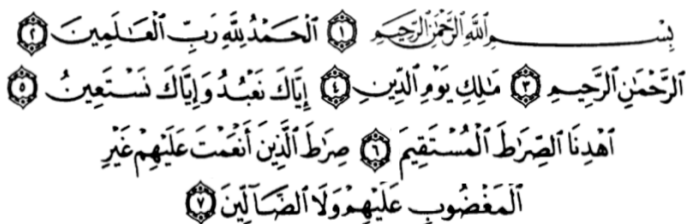 بِسْمِ ٱللَّهِ ٱلرَّحْمَٰنِ ٱلرَّحِيمِ ۝١ ٱلْحَمْدُ لِلَّهِ رَبِّ ٱلْعَٰلَمِينَ ۝٢
ٱلرَّحْمَٰنِ ٱلرَّحِيمِ ۝٣ مَٰلِكِ يَوْمِ ٱلدِّينِ ۝٤ إِيَّاكَ نَعْبُدُ وَإِيَّاكَ نَسْتَعِينُ ۝٥
ٱهْدِنَا ٱلصِّرَٰطَ ٱلْمُسْتَقِيمَ ۝٦ صِرَٰطَ ٱلَّذِينَ أَنْعَمْتَ عَلَيْهِمْ غَيْرِ
ٱلْمَغْضُوبِ عَلَيْهِمْ وَلَا ٱلضَّآلِّينَ ۝٧